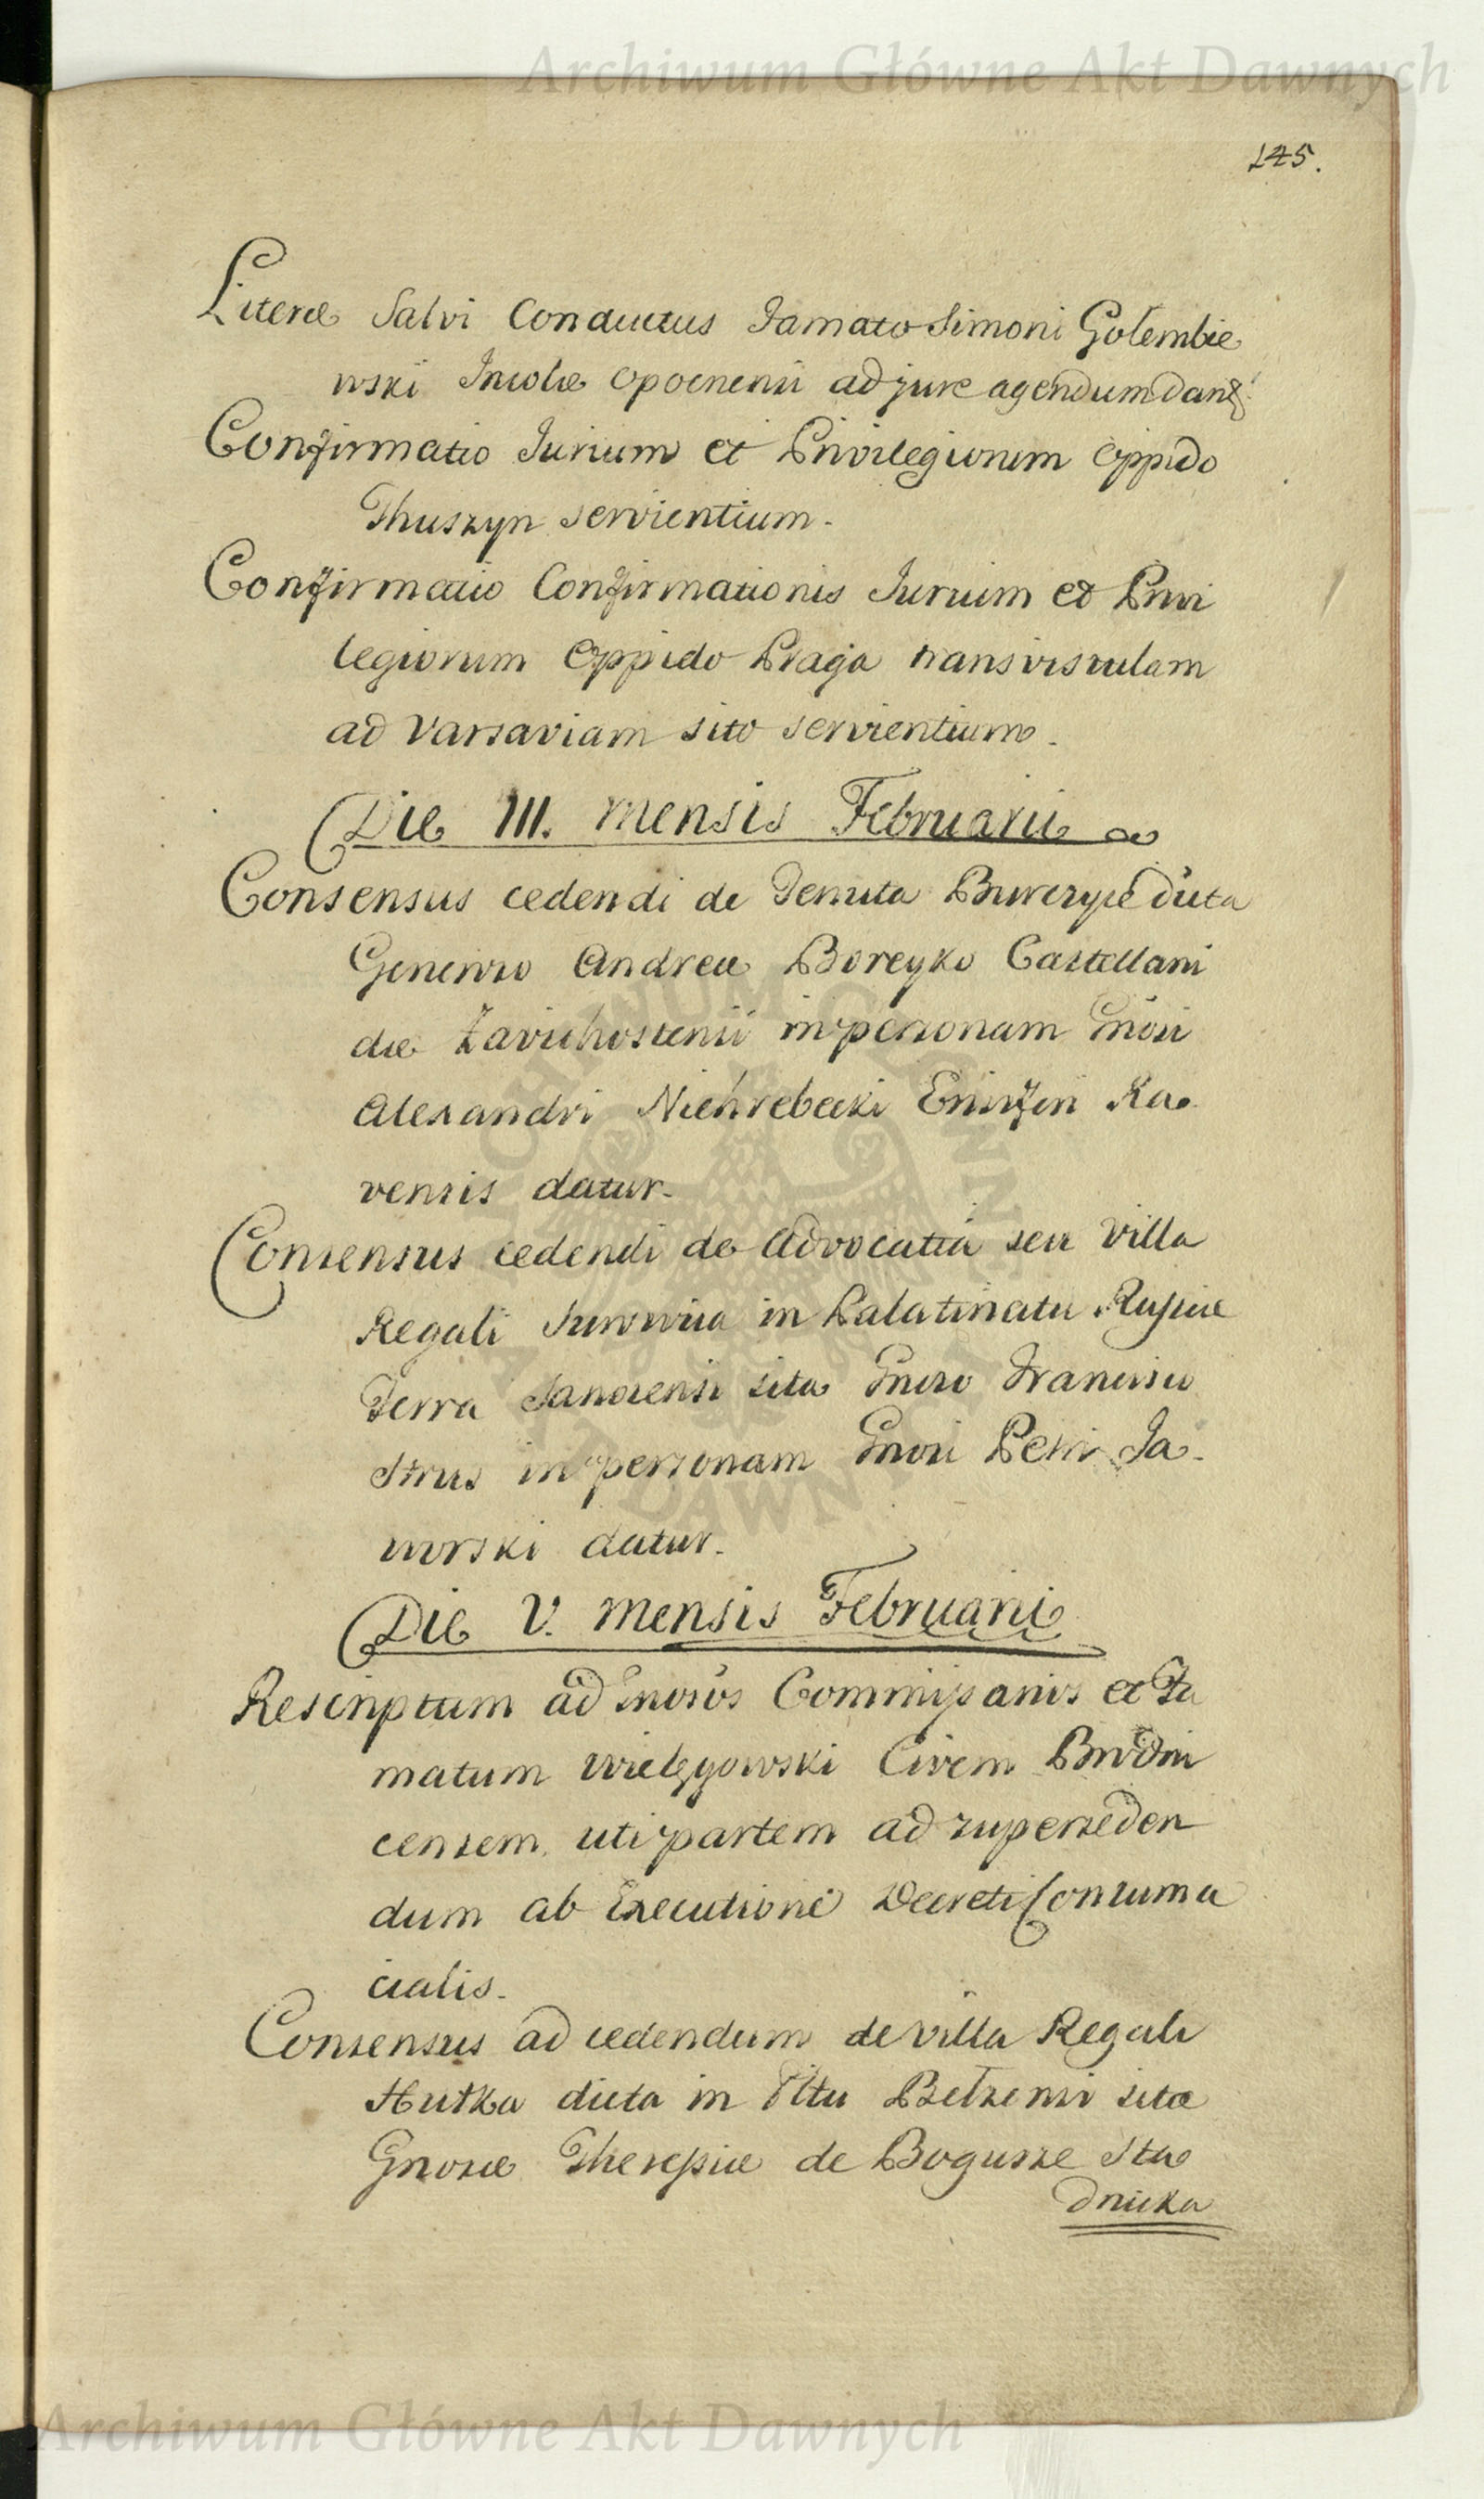 Archiwum Główne Akt Dawnych
145.
Literæ Salvi Conductus Famato Simoni Golembie
wski Incolæ Opocnensi ad jure agendum
Confirmatio Jurium et Privilegiorum Oppido
Thuszyn servientium.
Confirmatio Confirmationis Jurium et Privi
legiorum Oppido Praga transvistulam
ad Varsaviam sito servientium.
Die III. mensis Februarii
Consensus cedendi de Tenuta dicta
Andreæ Boreyko Castellani
dæ Zavichostensi in personam Gnosi
Alexandri Niehrebecki Ra
vensis datur.
Consensus cedendi de Advocatia seu villa
Regali in Palatinatu Russiæ
Terra Sanocensi sita Gnoso Francisco
Strus in personam Gnosi Petri Ja-
worski datur.
Die V. mensis Februarii
Rescriptum ad Gnosos Commissarios et Fa
matum Wielgyowski Civem
censem uti partem ad superseden
dum ab Executione Decreti Contuma
cialis.
Consensus ad cedendum de villa Regali
Hutka dicta in Pltu Belzensi sitæ
Gnosæ Theressiæ de Bogusze Sta
dnicka
Archiwum Główne Akt Dawnych